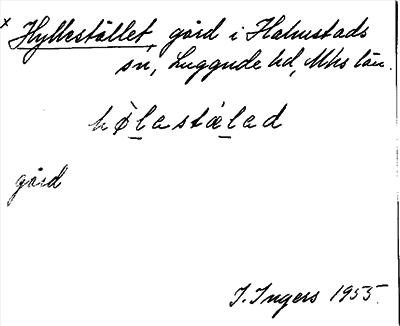 x Hyllestället, gård i Halmstads
sn, Luggude hd, Mhs län.
hø̀lastælad
gård
I. Ingers 1955.